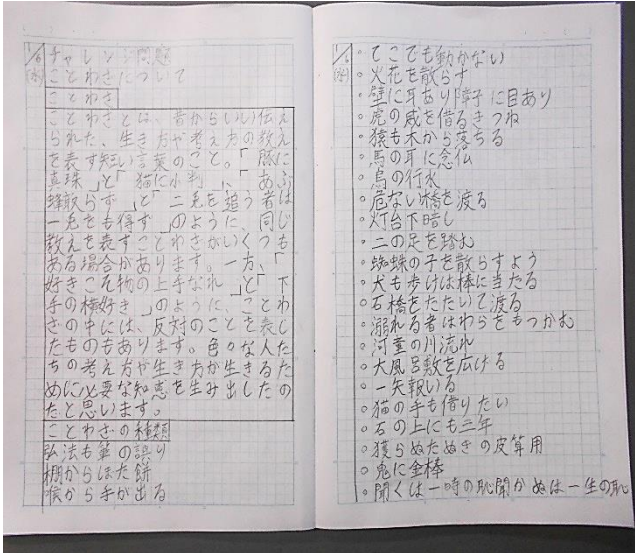 1/6 チャレンジ問題
(水) ことわざについて
ことわざ
ことわざとは、昔からいい伝え
られた、生き方や考え方の教え
を表す短い言葉のこと。「豚に
真珠」と「猫に小判」、「あぶ
蜂取らず」と「二兎を追う者は
一兎をも得ず」のように、同じ
教えを表すことわざがいくつも
ある場合があります。一方、「
好きこそ物の上手なれ」と「下
手の横好き」のように、ことわ
ざの中には、反対のことを表し
たものもあります。色々な人た
ちの考え方が生き方が生きるた
めに必要な知恵を生み出したの
だと思います。
ことわざの種類
弘法も筆の誤り
棚からぼた餅
喉から手が出る
1/6 ・てこでも動かない
(水) ・火花を散らす
・壁に耳あり障子に目あり
・虎の威を借るきつね
・猿も木から落ちる
・馬の耳に念仏
・烏の行水
・危ない橋を渡る
・灯台下暗し
・二の足を踏む
・蜘蛛の子を散らすよう
・犬も歩けば棒に当たる
・石橋をたたいて渡る
・溺れる者はわらをもつかむ
・河童の川流れ
・大風呂敷を広げる
・一矢報いる
・猫の手も借りたい
・石の上にも三年
・獲らぬたぬきの皮算用
・鬼に金棒
・聞くは一時の恥聞かぬは一生の恥